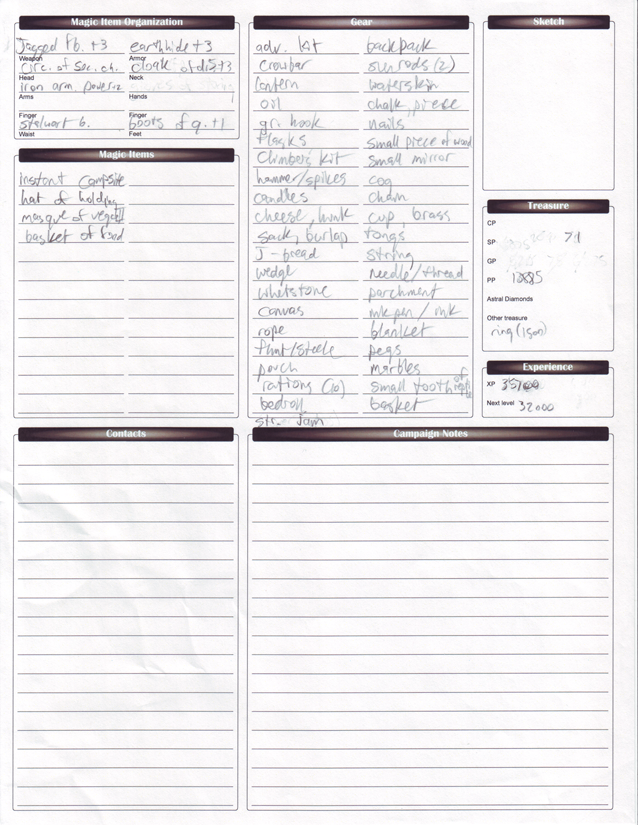 Magic Item Organization
Jagged fb. +3 earthhide +3
Weapon Armor
circ. of sec. ch. cloak of dis +3
Head Neck
iron arm. power+2
Arms Hands
Finger Finger
stalwart b. boots of q. +1
Waist Feet
Magic Items
instant campsite
hat of holding
masque of
basket of food
Gear
adv. kit backpack
crowbar sunrods (2)
lantern waterskin
oil chalk, piece
gr. hook nails
flasks small piece of wood
Climbers kit small mirror
hammer/spikes cog
candles chain
cheese, hunk cup, brass
sack, burlap tongs
J-bread string
wedge needle/thread
whetstone parchment
canvas ink pen / ink
rope blanket
flint/steele pegs
pouch marbles
rations (10) small tooth of reptile
bedroll basket
str. Jam
Sketch
Treasure
CP
SP
GP
PP
Astral Diamonds
Other treasure
ring (1500)
Experience
XP
Next level 32000
Contacts
Campaign Notes